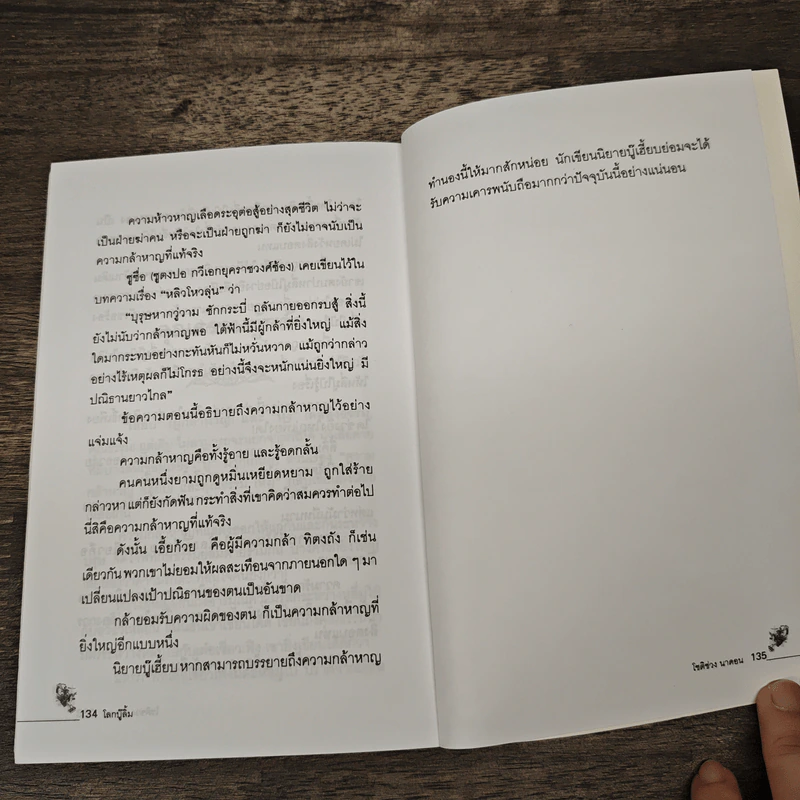 ความห้าวหาญเลือดระอุต่อสู้อย่างสุดชีวิต ไม่ว่าจะ
เป็นฝ่ายฆ่าคน หรือจะเป็นฝ่ายถูกฆ่า ก็ยังไม่อาจนับเป็น
ความกล้าหาญที่แท้จริง
ซูซื่อ (ซูตงปอ กวีเอกยุคราชวงศ์ซ้อง) เคยเขียนไว้ใน
บทความเรื่อง “หลิวโหวลุ่น” ว่า
“บุรุษหากวู่วาม ชักกระบี่ ถลันกายออกรบสู้ สิ่งนี้
ยังไม่นับว่ากล้าหาญพอ ใต้ฟ้านี้มีผู้กล้าที่ยิ่งใหญ่ แม้สิ่ง
ใดมากระทบอย่างกะทันหันก็ไม่หวั่นหวาด แม้ถูกว่ากล่าว
อย่างไร้เหตุผลก็ไม่โกรธ อย่างนี้จึงจะหนักแน่นยิ่งใหญ่ มี
ปณิธานยาวไกล”
ข้อความตอนนี้อธิบายถึงความกล้าหาญไว้อย่าง
แจ่มแจ้ง
ความกล้าหาญคือทั้งรู้อาย และรู้อดกลั้น
คนคนหนึ่งยามถูกดูหมิ่นเหยียดหยาม ถูกใส่ร้าย
กล่าวหา แต่ก็ยังกัดฟัน กระทำสิ่งที่เขาคิดว่าสมควรทำต่อไป
นี่สิคือความกล้าหาญที่แท้จริง
ดังนั้น เอี้ยก้วย คือผู้มีความกล้า ทิตงถัง ก็เช่น
เดียวกัน พวกเขาไม่ยอมให้ผลสะเทือนจากภายนอกใด ๆ มา
เปลี่ยนแปลงเป้าปณิธานของตนเป็นอันขาด
กล้ายอมรับความผิดของตน ก็เป็นความกล้าหาญที่
ยิ่งใหญ่อีกแบบหนึ่ง
นิยายบู๊เฮี้ยบ หากสามารถบรรยายถึงความกล้าหาญ
134 โลกบู๊ลิ้ม
ทำนองนี้ให้มากสักหน่อย นักเขียนนิยายบู๊เฮี้ยบย่อมจะได้
รับความเคารพนับถือมากกว่าปัจจุบันนี้อย่างแน่นอน
โชติช่วง นาดอน 135